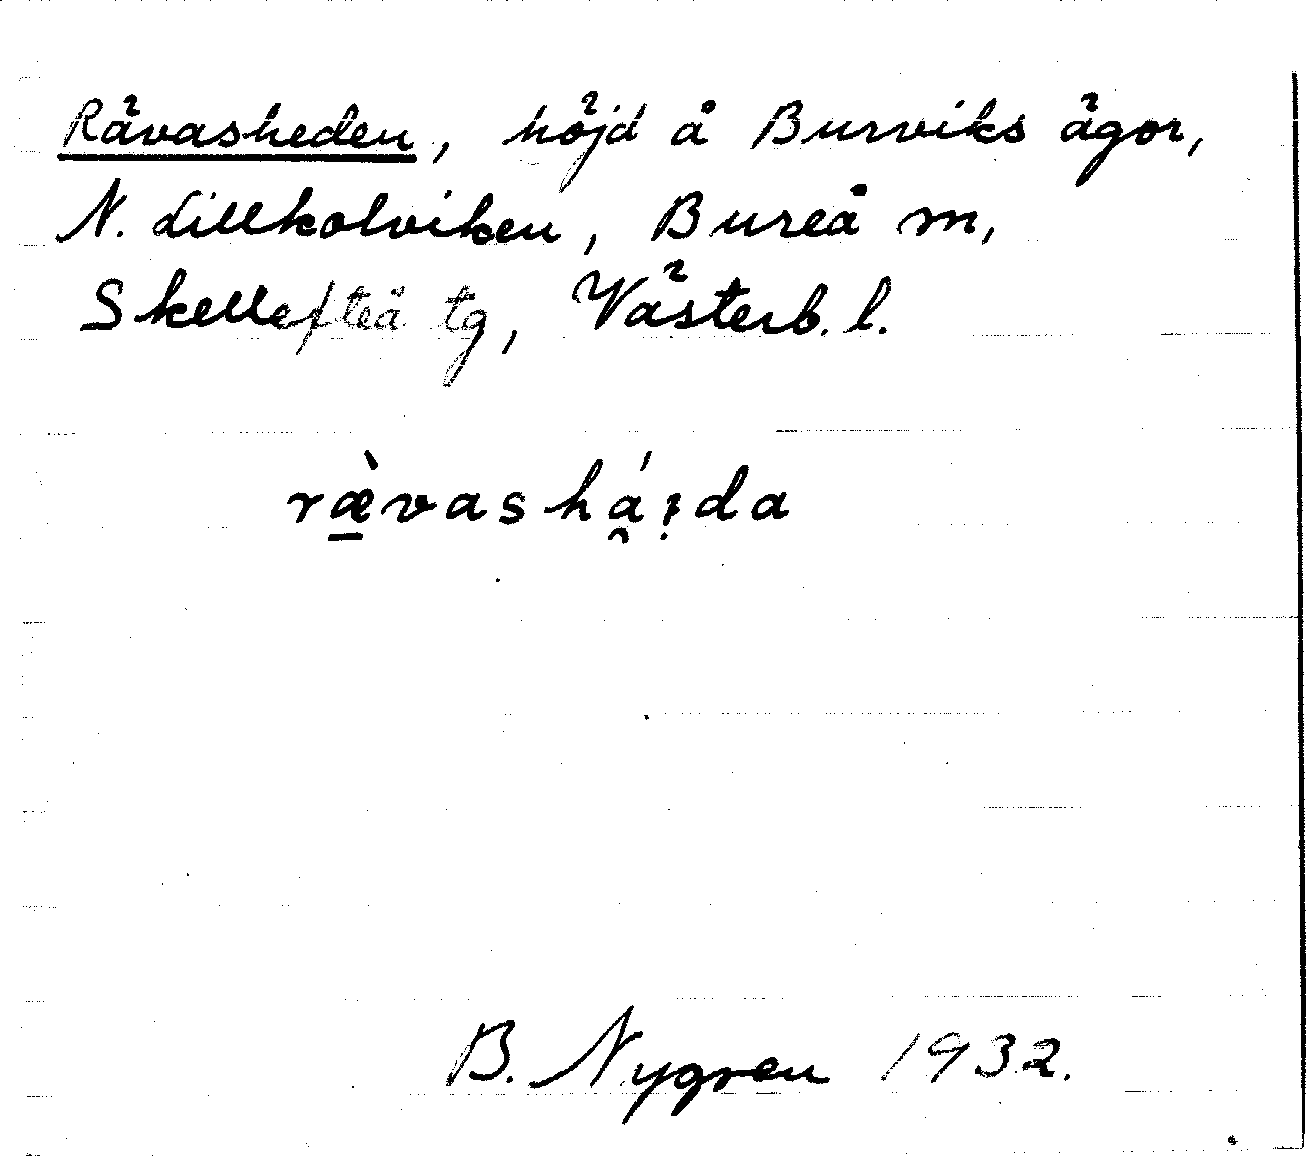 Rävasheden, höjd å Burviks ägor,
N. Lillkolviken, Bureå sn,
Skellefteå tg, Västerb. l.
ræ̱̀vashá̯ı̣da
B. Nygren 1932.